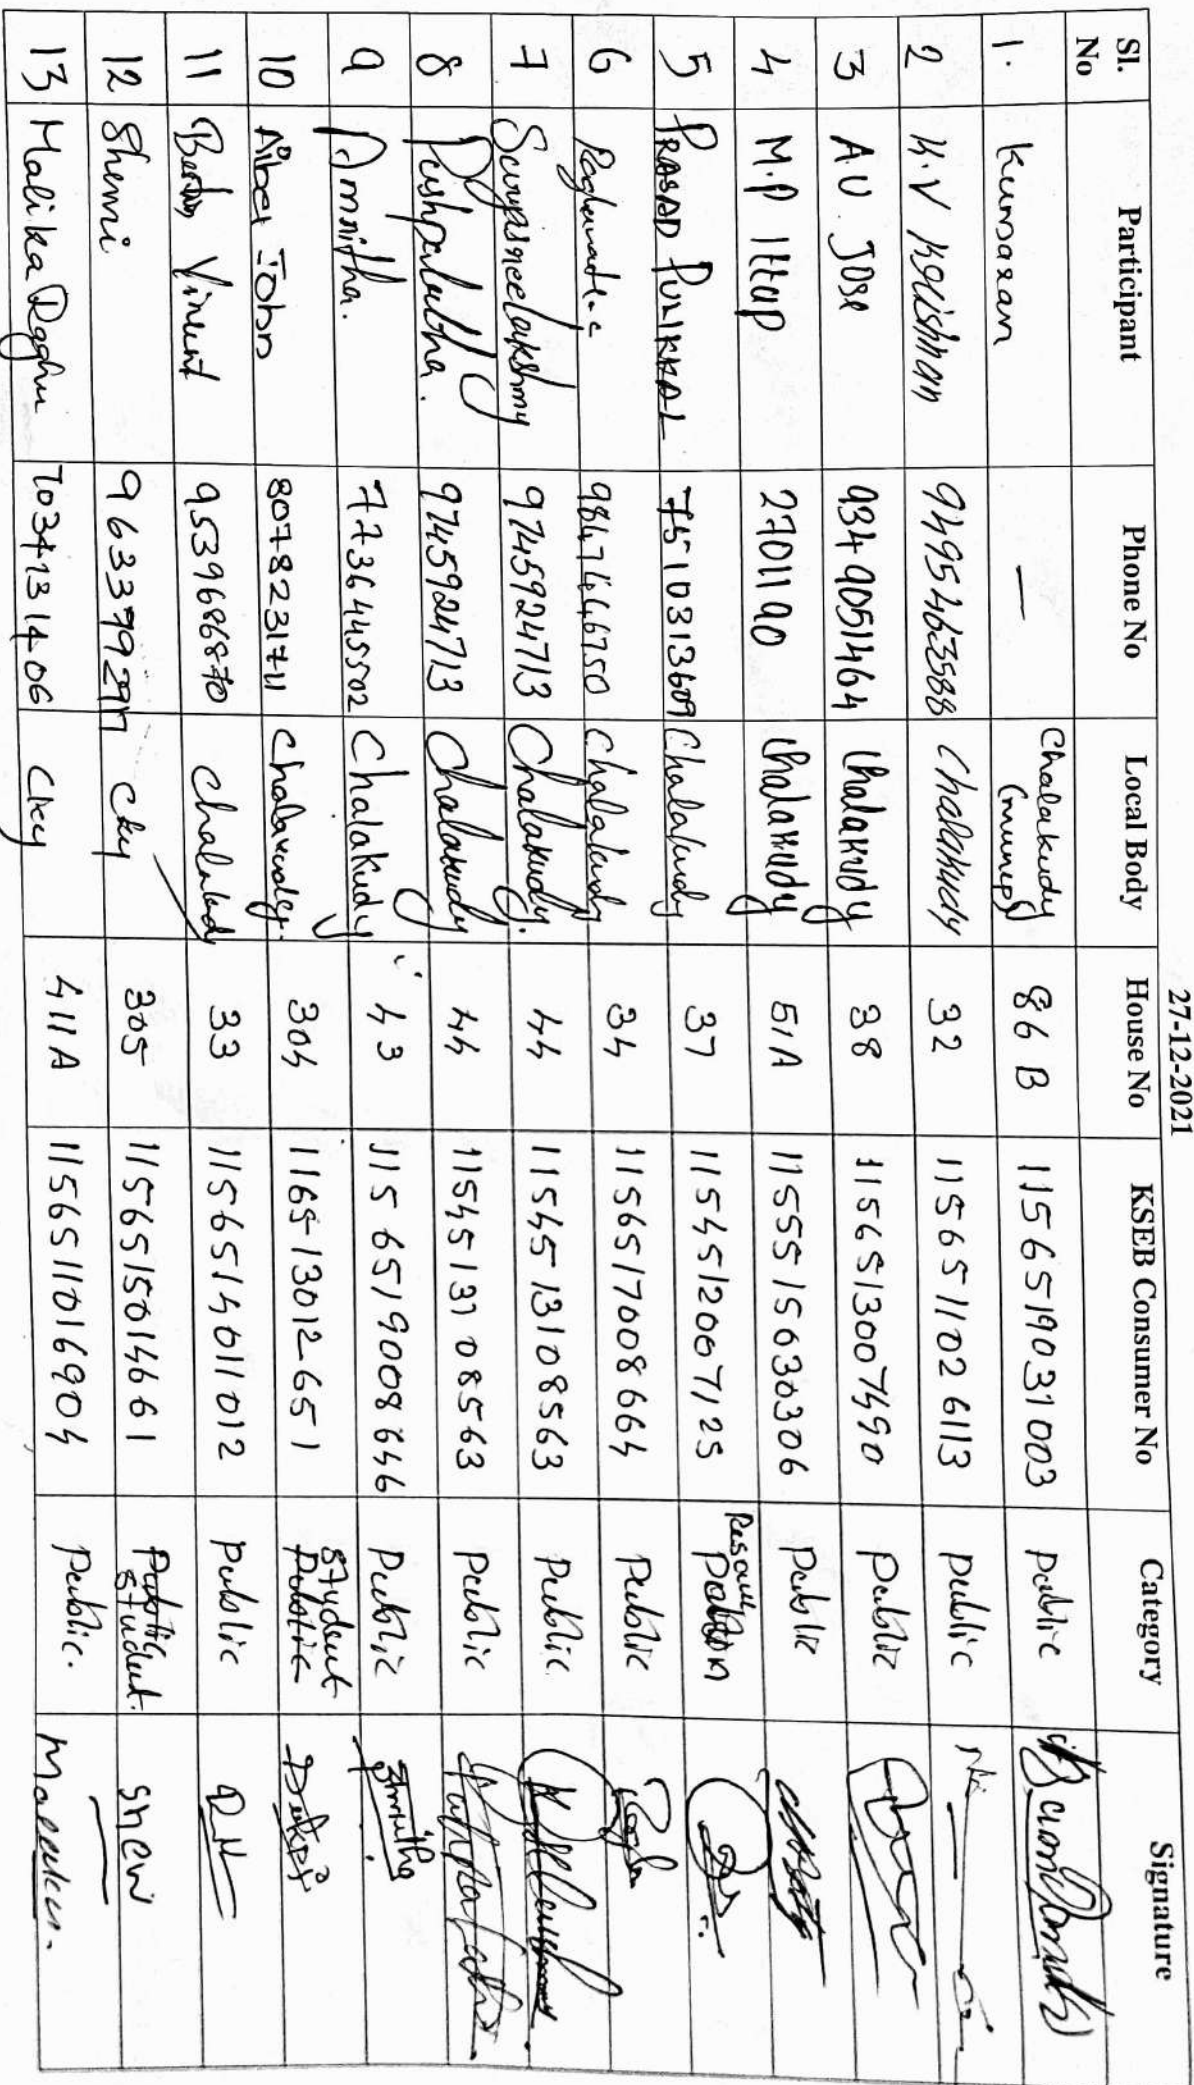 27-12-2021
Sl. No Participant Phone No Local Body House No KSEB Consumer No Category Signature
1. Kumaran — Chalakudy (muncp) 86 B 1156519031003 public
2 K.V Krishnan 9495463588 Chalakudy 32 1156511026113 public
3 A.V. Jose 9349051464 Chalakudy 38 1156513007490 Public
4 M.P Ittup 2701190 Chalakudy 51A 1155515030306 Public
5 PRASAD PUNIKKAL 7510313609 Chalakudy 37 1154512007125 Resource
6 9847446750 Chalakudy 34 1156517008664 Public
7 Suryasreelakshmy 9745924713 Chalakudy. 44 1154513108563 Public.
8 Pushpalatha. 9745924713 Chalakudy 44 1154513108563 Public
9 Amritha. 7736445502 Chalakudy 43 1156519008646 Public Amritha
10 John 8078231711 Chalakudy. 304 116513012651 Public student
11 Vincent 9539686870 Chalakudy 33 1156514011012 Public
12 Shemi 9633799297 Cky 305 1156515014661 Public student. Shemi
13 Malika Raghu 7034131406 Cky 411A 1156511016904 Public.